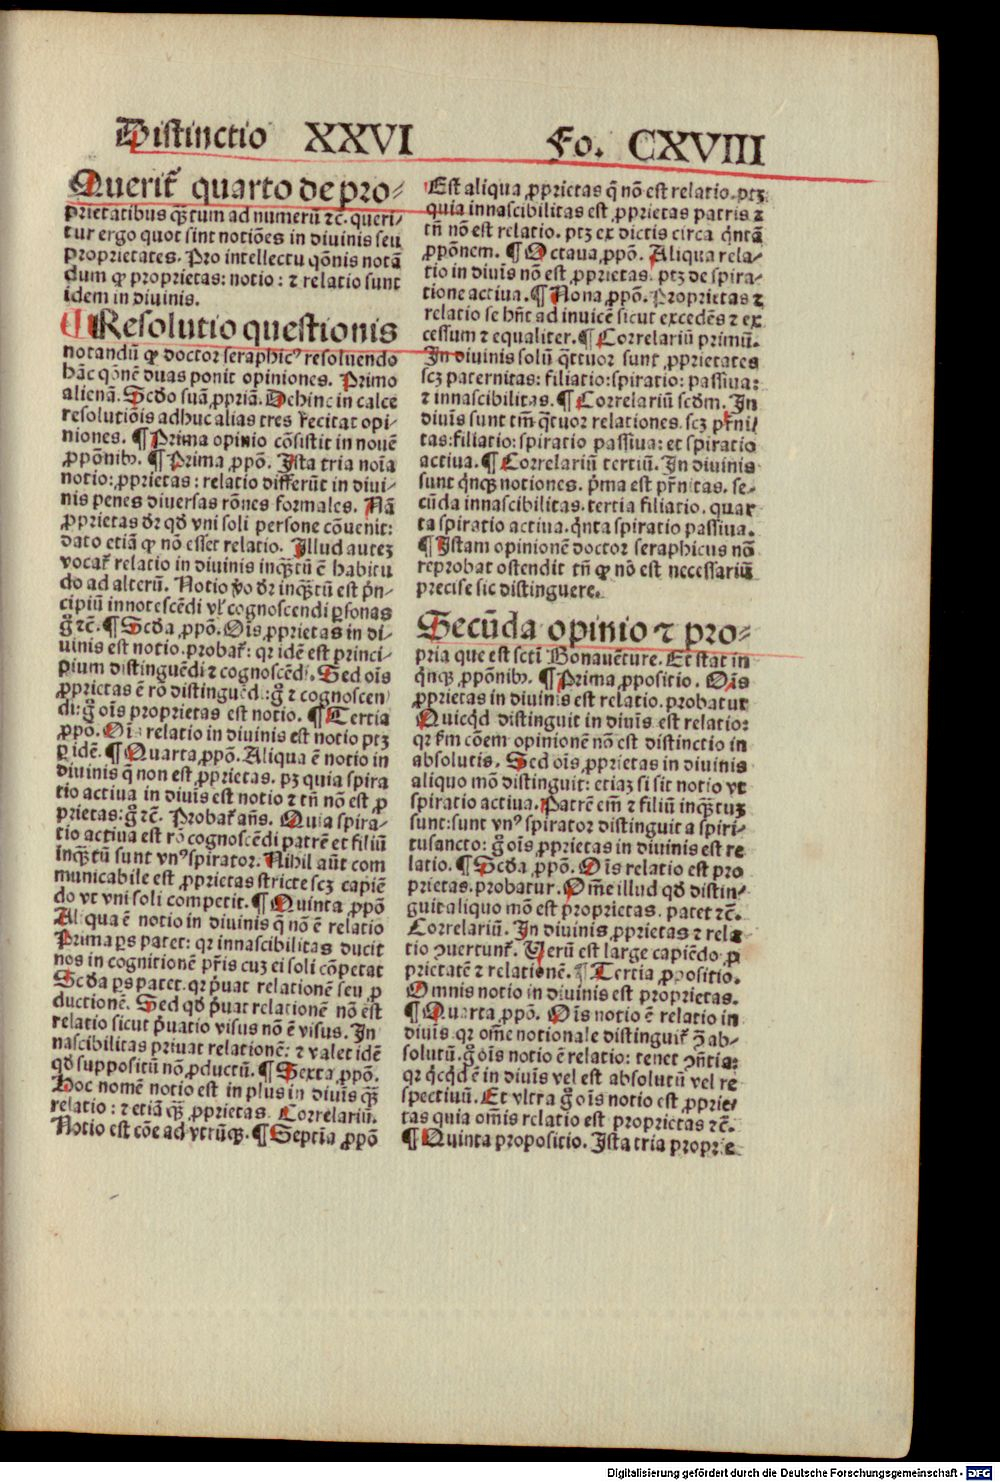 Distinctio XXVI Fo. CXVIII
Querit᷑ quarto de pro⸗
prietatibus qꝫtum ad numerū ⁊c̄. queri⸗
tur ergo quot sint notiōes in diuinis seu
proprietates. Pro intellectu qōnis notā
dum ꝙ proprietas: notio: ⁊ relatio sunt
idem in diuinis.
¶ Resolutio questionis
notandū ꝙ doctor seraphicꝰ resoluendo
hāc qōnē duas ponit opiniones. Primo
alienā. Scďo suā ꝓpriā. Dehinc in calce
resolutiōis adhuc alias tres recitat opi⸗
niones. ¶ Prima opinio cōsistit in nouē
ꝓpōnibꝫ. ¶ Prima ꝓpō. Ista tria noīa
notio: ꝓprietas: relatio differūt in diui⸗
nis penes diuersas rōnes formales. Nā
ꝓprietas dr̄ qď vni soli persone cōuenit:
dato etiā ꝙ nō esset relatio. Illud autez
vocat᷑ relatio in diuinis inqꝫtū ē habitu
do ad alterū. Notio ꝟo dr̄ inqꝫtū est pn̄⸗
cipiū innotescēdi vl̓ cognoscendi ꝑsonas
g̊ ⁊c̄. ¶ Scďa ꝓpō. Oīs ꝓprietas in di⸗
uinis est notio. probat᷑: qr idē est princi⸗
pium distinguēdi ⁊ cognoscēdi. Sed oīs
ꝓprietas ē rō distinguēdi: g̊ ⁊ cognoscen
di: g̊ oīs proprietas est notio. ¶ Tertia
ꝓpō. Oīs relatio in diuinis est notio ptꝫ
ꝑ idē. ¶ Quarta ꝓpō. Aliqua ē notio in
diuinis q̄ non est ꝓprietas. pꝫ quia spira
tio actiua in diuīs est notio ⁊ tn̄ nō est ꝓ
prietas: g̊ ⁊c̄. Probat᷑ añs. Quia spira⸗
tio actiua est rō cognoscēdi patrē et filiū
inqꝫtū sunt vnꝰ spirator. Nihil aūt com
municabile est ꝓprietas stricte scꝫ capiē
do vt vni soli competit. ¶ Quinta ꝓpō
Aliqua ē notio in diuinis q̄ nō ē relatio
Prima ps̄ patet: qr innascibilitas ducit
nos in cognitionē pr̄is cuꝫ ei soli cōpetat
Scďa ps̄ patet. qr p̄uat relationē seu ꝓ
ductionē. Sed qď p̄uat relationē nō est
relatio sicut p̄uatio visus nō ē visus. In
nascibilitas priuat relationē: ⁊ valet idē
qď suppositū nō ꝓductū. ¶ Sexta ꝓpō.
Hoc nomē notio est in plus in diuīs qꝫ
relatio: ⁊ etiā qꝫ ꝓprietas. Correlariū.
Notio est cōe ad vtrūqꝫ. ¶ Septīa ꝓpō
Est aliqua ꝓprietas q̄ nō est relatio. ptꝫ
quia innascibilitas est ꝓprietas patris ⁊
tn̄ nō est relatio. ptꝫ ex dictis circa qn̄tā
ꝓpōnem. ¶ Octaua ꝓpō. Aliqua rela⸗
tio in diuīs nō est ꝓprietas. ptꝫ de spira⸗
tione actiua. ¶ Nona ꝓpō. Proprietas ⁊
relatio se hn̄t ad inuicē sicut excedēs ⁊ ex
cessum ⁊ equaliter. ¶ Correlariū primū.
In diuinis solū qꝫttuor sunt ꝓprietates
scꝫ paternitas: filiatio: spiratio: passiua:
⁊ innascibilitas. ¶ Correlariū scďm. In
diuīs sunt tm̄ qꝫtuor relationes. scꝫ pr̄ni
tas: filiatio: spiratio passiua: et spiratio
actiua. ¶ Correlariū tertiū. In diuinis
sunt qn̄qꝫ notiones. p̄ma est pr̄nitas. se⸗
cūda innascibilitas. tertia filiatio. quar
ta spiratio actiua. qn̄ta spiratio passiua.
¶ Istam opinionē doctor seraphicus nō
reprobat ostendit tn̄ ꝙ nō est necessariū
precise sic distinguere.
Secūda opinio ⁊ pro⸗
pria que est scti̅ Bonauēture. Et stat in
qn̄qꝫ ꝓpōnibꝫ. ¶ Prima ꝓpositio. Oīs
ꝓprietas in diuinis est relatio. probatur
Quicqd distinguit in diuīs est relatio:
qr ẜm cōem opinionē nō est distinctio in
absolutis. Sed oīs ꝓprietas in diuinis
aliquo mō distinguit: etiaꝫ si sit notio vt
spiratio actiua. Patrē em̄ ⁊ filiū inqꝫtuꝫ
sunt: sunt vnꝰ spirator distinguit a spiri⸗
tusancto: g̊ oīs ꝓprietas in diuinis est re
latio. ¶ Scďa ꝓpō. Oīs relatio est pro
prietas. probatur. Om̄e illud qď distin⸗
guit aliquo mō est proprietas. patet ⁊c̄.
Correlariū. In diuinis ꝓprietas ⁊ rela⸗
tio ꝯuertunt᷑. Verū est large capiēdo ꝓ
prietatē ⁊ relationē. ¶ Tertia ꝓpositio.
Omnis notio in diuinis est proprietas.
¶ Quarta ꝓpō. Oīs notio ē relatio in
diuīs. qr om̄e notionale distinguit᷑ ꝯ̄ ab⸗
solutū. g̊ oīs notio ē relatio: tenet ꝯn̄tia:
qr qc̄qd ē in diuīs vel est absolutū vel re
spectiuū. Et vltra g̊ oīs notio est ꝓprie⸗
tas quia om̄is relatio est proprietas ⁊c̄.
¶ Quinta propositio. Ista tria proprie
Digitalisierung gefördert durch die Deutsche Forschungsgemeinschaft - DFG